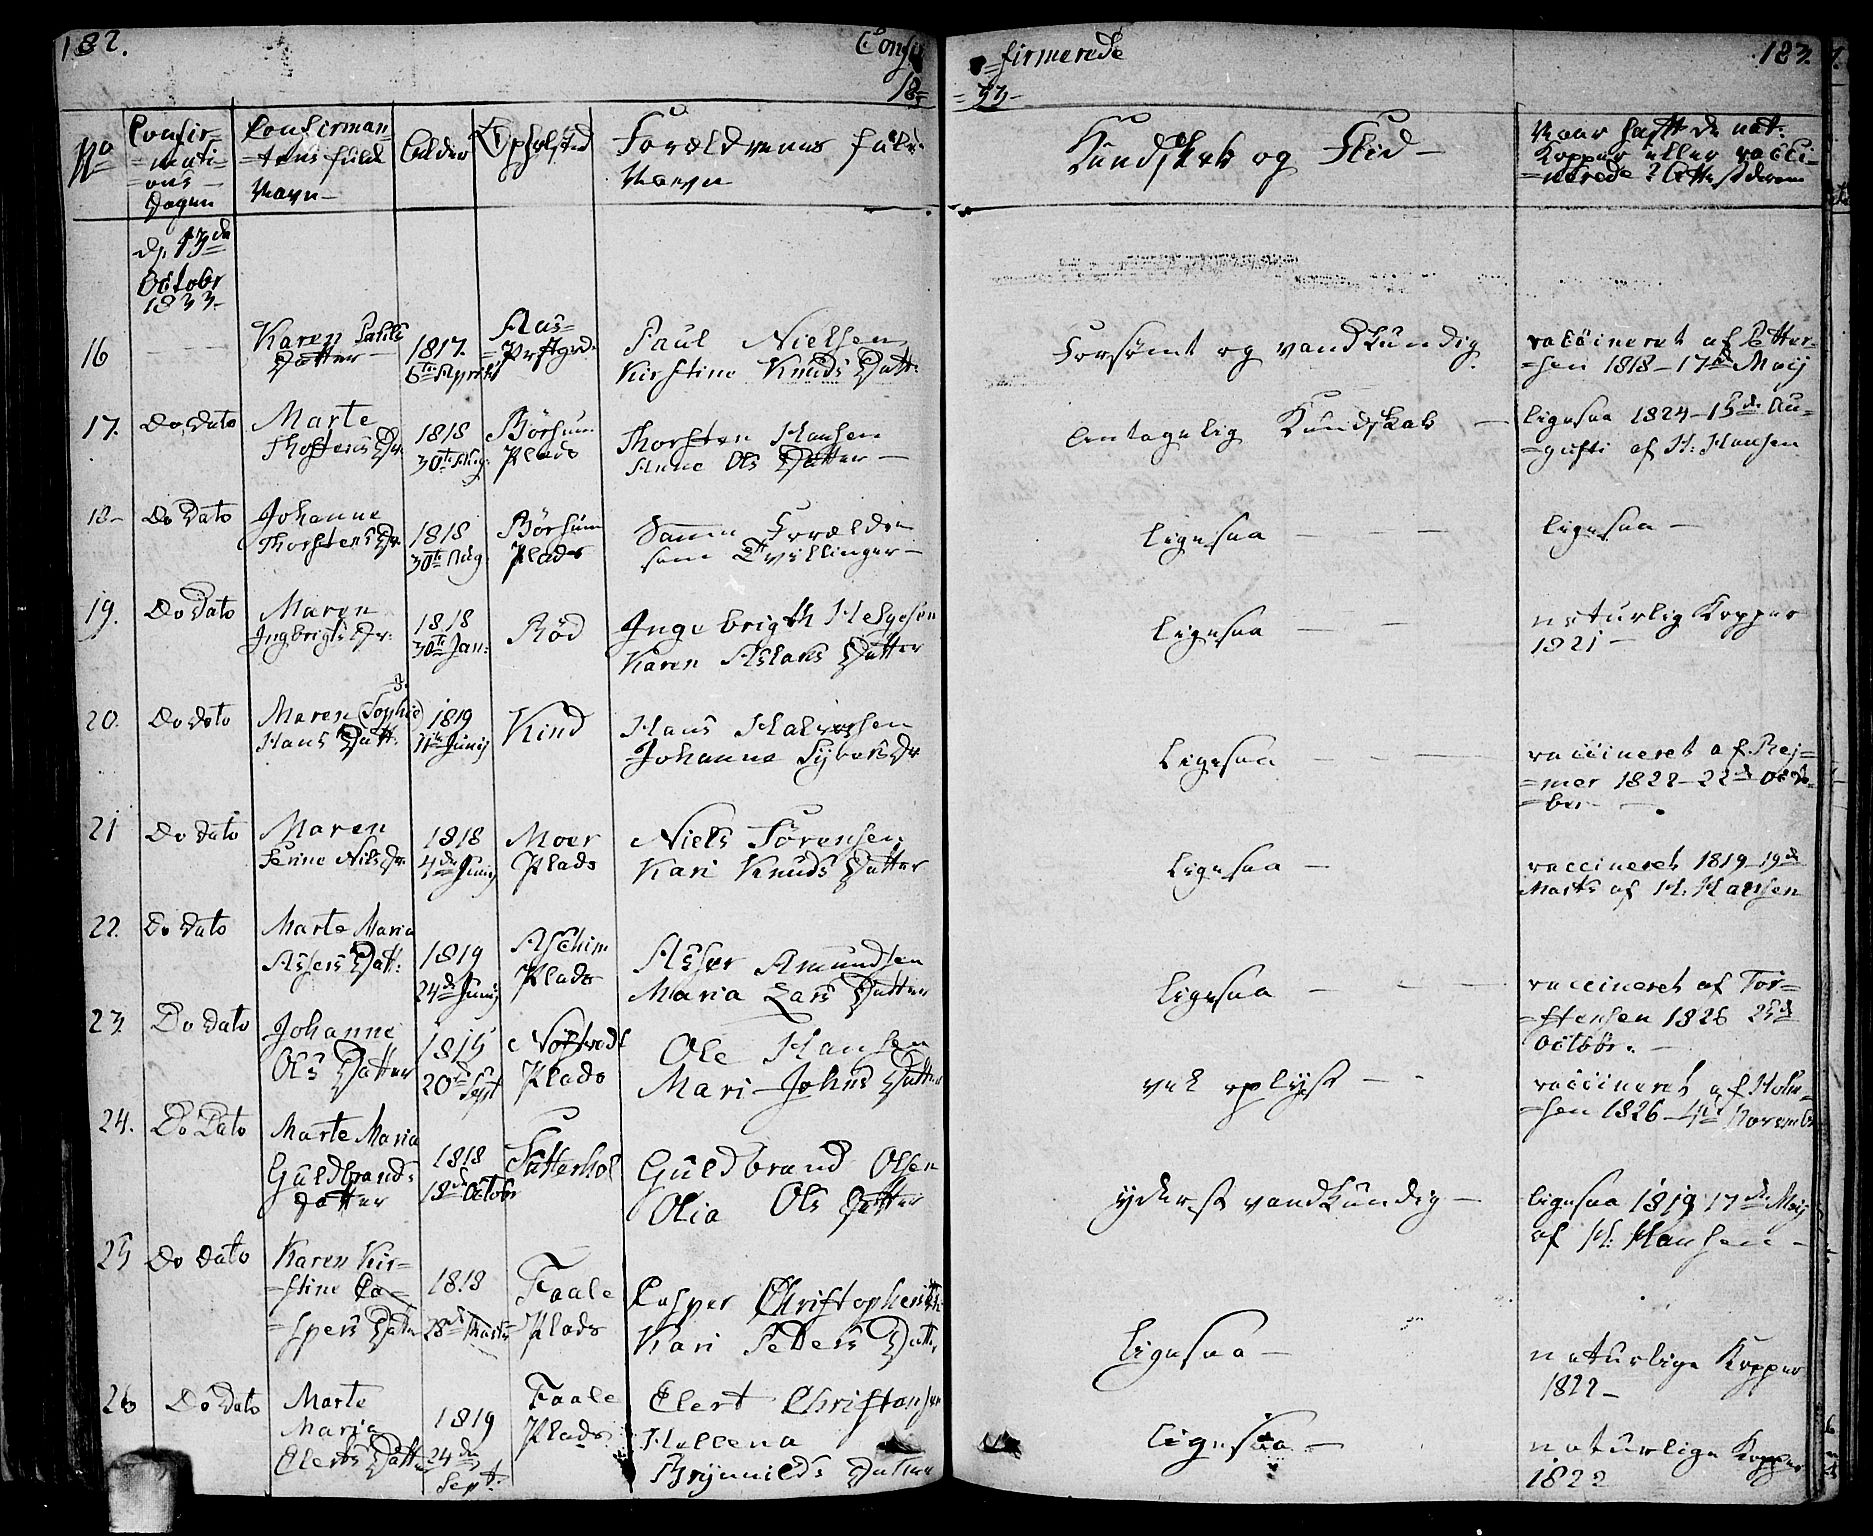 182.
Con-
=firmerede
183.
18=
=33-
No
Confir-
=mati-
=ons-
Dagen
Confirman-
=tens fulde
Navn-
Alder
Opholsted
Forældrenes fulde
Navn
Kundskab og Flid-
Naar hafft de nat:
Kopper eller vacci-
=nerede? Attest derom
d. 13de
October
1833-
16
Karen Pauls
Datter-
1817.
6te April
Aas-
=Prstgrd.
Paul Nielsen
Kirstine Knuds Datt:
Forsømt og vandkundig
vaccineret af Petter-
=sen 1818-17de Maij
17.
Do Dato
Marte
Thorstens Dr.
1818
30te Aug:
Børsum
Plads
Thorsten Hansen
Anne Ols Datter-
Antagelig Kundskab -
ligesaa 1824-15de Au-
=gusti af H: Hansen
18-
Do Dato
Johanne
Thorstens Dr
1818
30te Aug
Børsum
Plads
Samme Forældre
som Tvillinger-
ligesaa - - -
ligesaa-
19.
Do Dato
Maren
Ingbrigts Dr:
1818
30te Jan:
Rød
Ingebrigth Helgesen
Karen Aslaks Datter
ligesaa - -
naturlig Kopper
1821-
20.
Do Dato
Maren Sophie
Hans Datt:
1819
11te Junij
Kind
Hans Halvorsen
Johanne Syvers Dr
ligesaa - - -
vaccineret af Rej-
=mer 1822-22de Octo-
=ber-
21
Do Dato
Maren
Serine Nils Dr.
1818
4de Junij
Moer
Plads
Niels Sørensen
Kari Knuds Datter
ligesaa -
vaccineret 1819-19de
Marts af H: Hansen
22.
Do Dato
Marte Maria
Assers Datt:
1819
24de Junij
Aschim
Plads
Asser Amundsen
Maria Lars Datter
ligesaa - - -
vaccineret af Tor-
=stensen 1826 25de
October. -
23.
Do Dato
Johanne
Ols Datter
1815
20de Sept
Plads
Ole Hansen
Mari-Johns Datter
vel oplyst - -
vaccineret af Holm-
=sen 1826-4de Novemb
24.
Do Dato
Marte Maria
Guldbrands
Datter
1818
18de Octobr
Sætterhol
Guldbrand Olsen
Olia Ols Datter
yderst vandkundig -
ligesaa 1819 17de Maij
af H: Hansen -
25
Do Dato
Karen Kir-
=stine Ca-
=spers Datr
1818
28de Marts
Faale
Plads
Casper Christophersen
Kari Peders Datter
ligesaa-
naturlige Kopper
1822-
26
Do Dato
Marte
Maria
Elerts Datter
1819
24de
Sept.
Faale
Plads
Elert Christansen
Hellena
Brynnilds Datter
ligesaa-
naturlige Kopper
1822